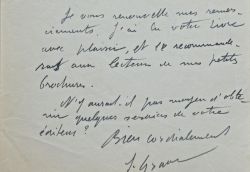 Je vous renouvelle mes remer-
ciements. J'ai lu votre livre
avec plaisir, et le recommande-
rai aux lecteurs de mes petits
brochures.
N'y aurait-il pas moyen d'obte-
nir quelques services de votre
éditeur ?
Bien cordialement